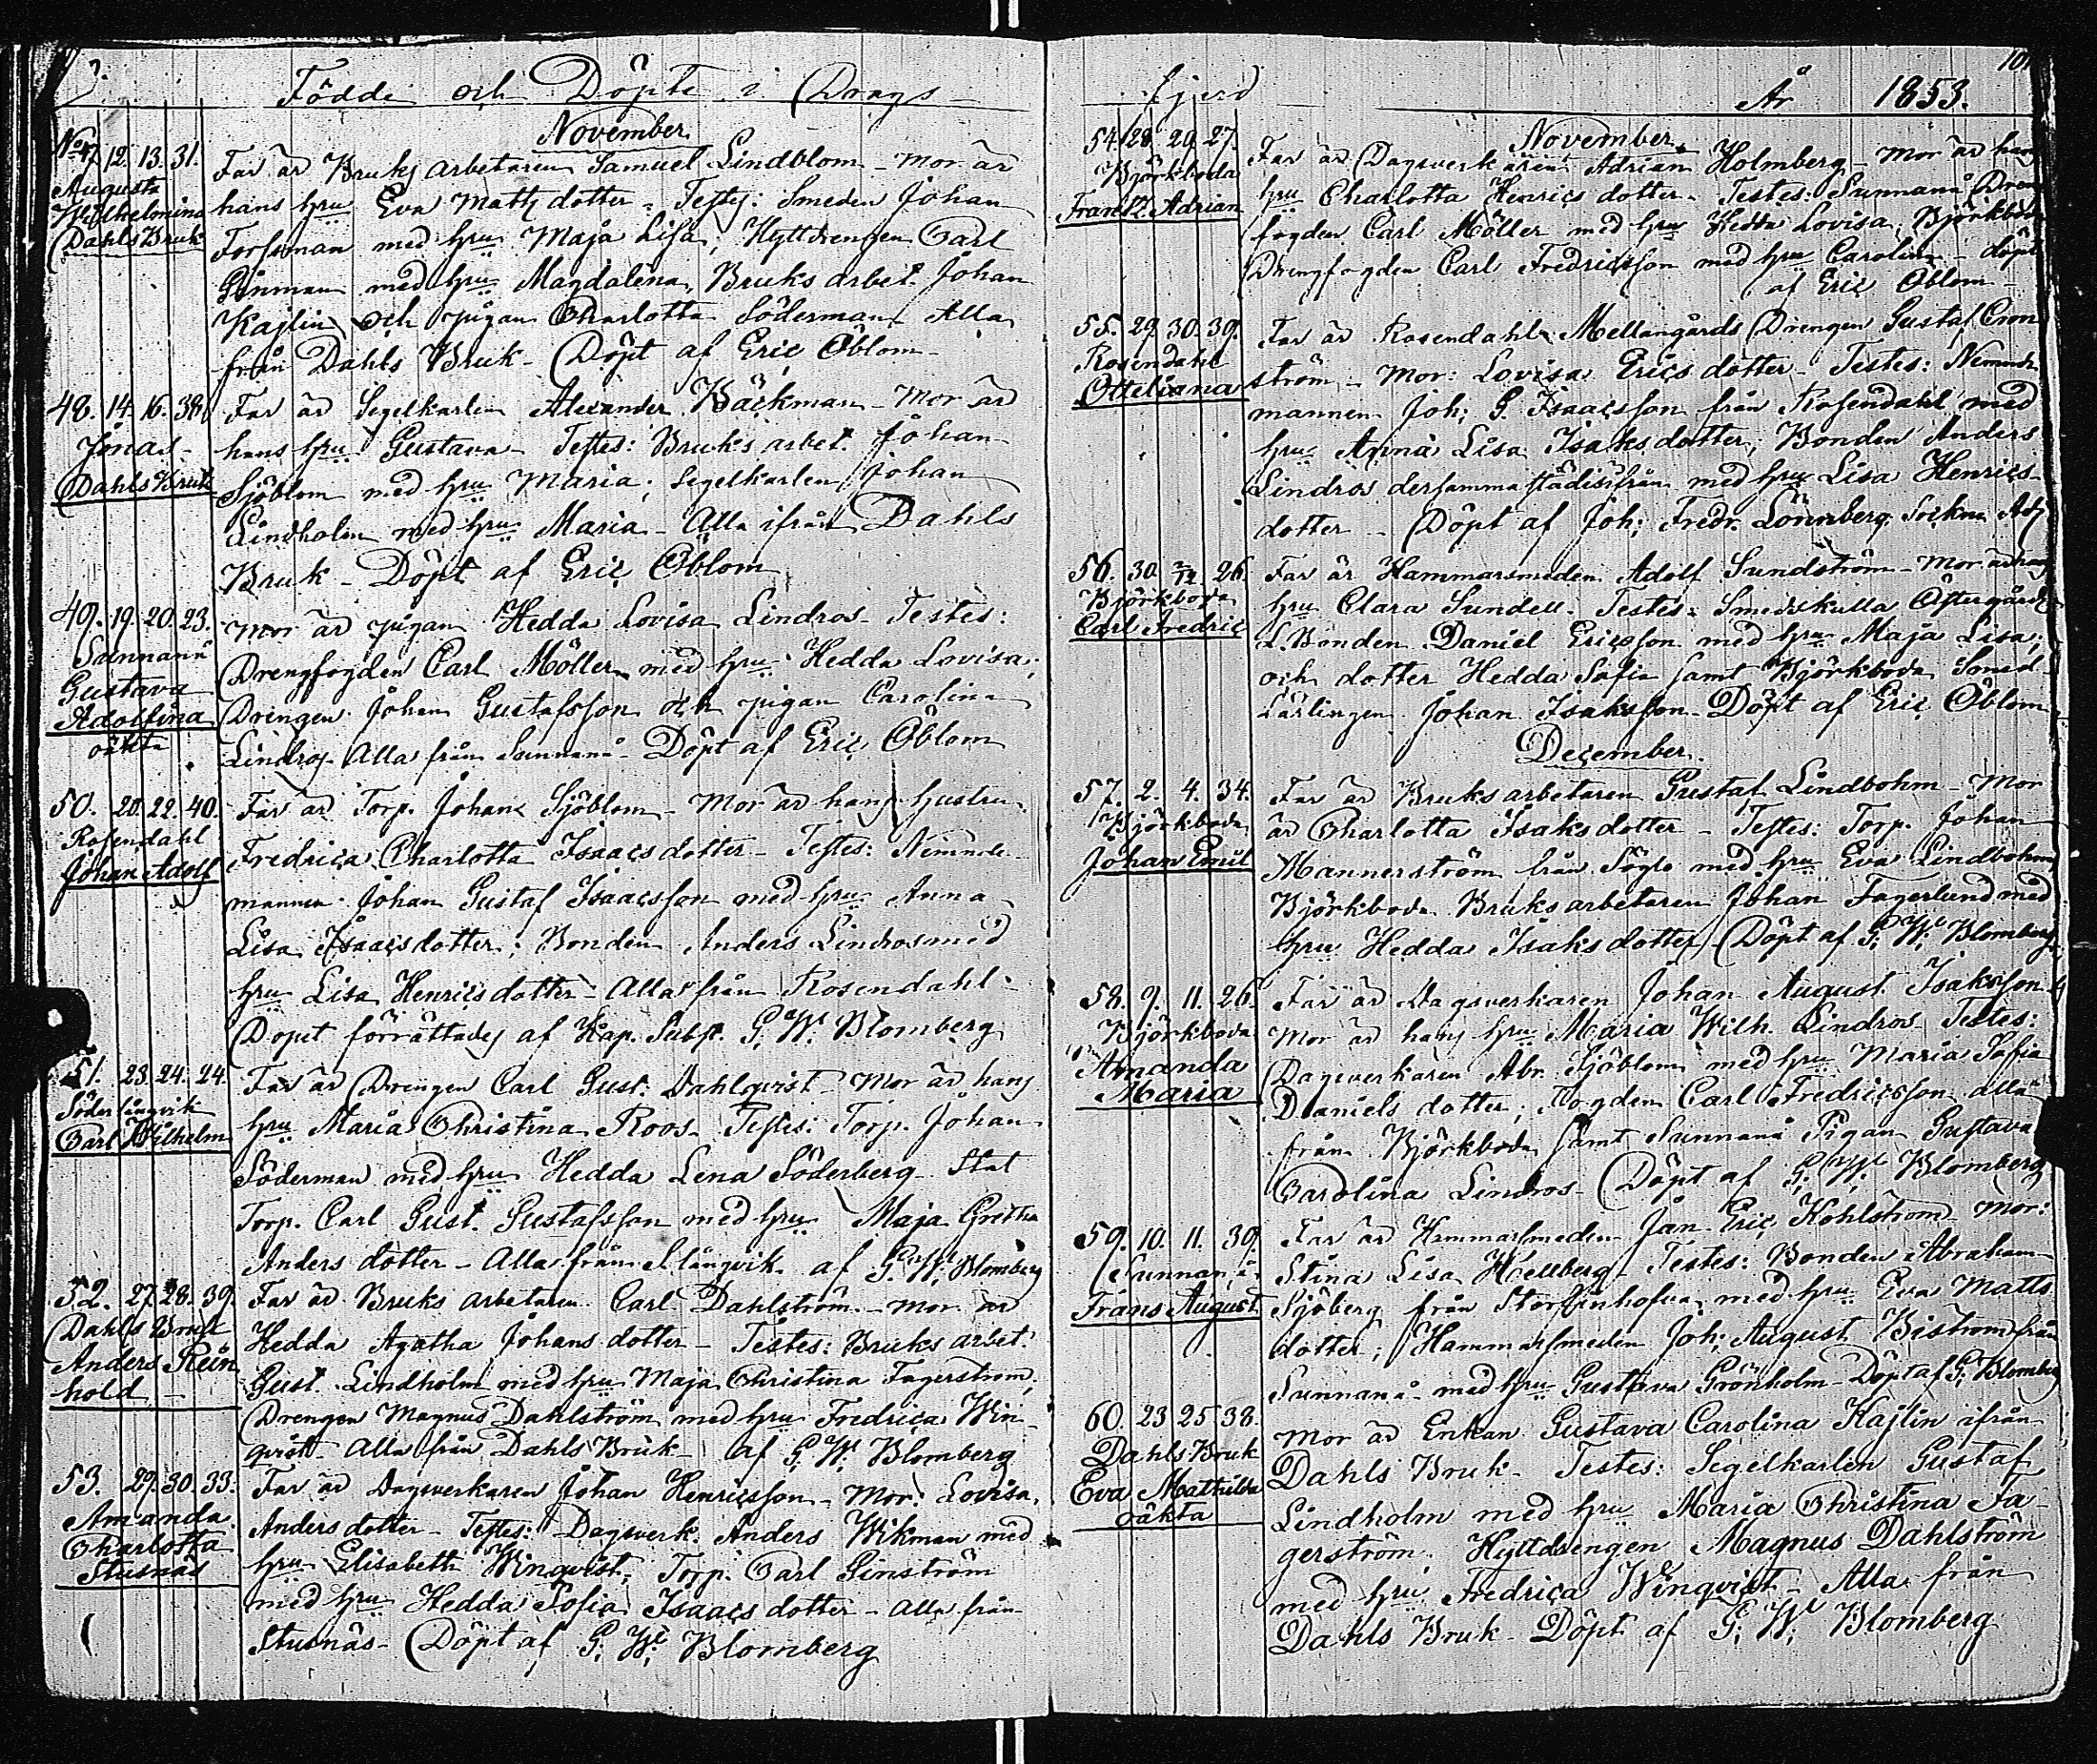 Födde och Döpte i Drags
November
No 47 12. 13. 31.
Augusta
Wilhelmina
Dahls Bruk
Far är Bruks arbetaren Samuel Lindblom - Mor är
hans hru Eva Matts dotter - Testes: Smeden Johan
Forsman med hru Maja Lisa, Hyttdrengen Carl
med hru Magdalena, Bruks arbet. Johan
Kajlin och pigan Charlotta Söderman - Alla
från Dahls Bruk - Döpt af Eric Öblom -
48. 14. 16. 38.
Jonas -
Dahls Bruk
Far är Segelkarlen Alexander Bäckman - Mor är
hans hru Gustava - Testes: Bruks arbet. Johan
Sjöblom med hru Maria; Segelkarlen Johan
Lindholm med hru Maria - Alla ifrån Dahls
Bruk - Döpt af Eric Öblom
49. 19. 20. 23.
Sunnanå
Gustava
Adolfina
oäkta
Mor är pigan Hedda Lovisa Lindros - Testes:
Drengfogden Carl Möller med hru Hedda Lovisa;
Drengen Johan Gustafsson och pigan Carolina
Lindros - Alla från Sunnanå - Döpt af Eric Öblom
50. 20. 22. 40.
Rosendahl
Johan Adolf
Far är Torp. Johan Sjöblom - Mor är hans hustru
Fredrica Charlotta Isaacs dotter - Testes: Nemnde-
mannen Johan Gustaf Isaacsson med hru Anna
Lisa Isaacs dotter; Bonden Anders Lindros med
hru Lisa Henrics dotter - Alla från Rosendahl -
Dopet förrättades af Kap. Subst. G. W. Blomberg
51. 23. 24. 24.
Söderlångvik
Carl Wilhelm
Far är Drengen Carl Gust. Dahlqvist - Mor är hans
hru Maria Christina Roos - Testes: Torp. Johan
Söderman med hru Hedda Lena Söderberg - Stat
Torp. Carl Gust. Gustafsson med hru Maja Gretha
Anders dotter - Alla från S långvik - af G. W. Blomberg
52. 27. 28. 39.
Dahls Bruk
Anders Rein
hold -
Far är Bruks arbetaren Carl Dahlström - Mor är
Hedda Agatha Johans dotter - Testes: Bruks arbet.
Gust. Lindholm med hru Maja Christina Fagerström,
Drengen Magnus Dahlström med hru Fredrica Win-
qvist - Alla från Dahls Bruk - af G. W. Blomberg
53. 29. 30. 33.
Amanda
Charlotta
Stusnäs
Far är Dagsverkaren Johan Henricsson - Mor: Lovisa
Anders dotter - Testes: Dagsverk. Anders Wikman med
hru Elisabeth Winqvist; Torp. Carl Sinström
med hru Hedda Sofia Isaacs dotter - Alla från
Stusnäs - Döpt af G. W. Blomberg
fjerd År 1853.
101
November
54. 28. 29. 27.
Björkboda
Frantz Adrian
Far är Dagsverkaren Adrian Holmberg - Mor är hans
hru Charlotta Henrics dotter - Testes: Sunnanå Dreng
fogden Carl Möller med hru Hedda Lovisa, Björkboda
Drengfogden Carl Fredricsson med hru Carolina - döpt
af Eric Öblom -
55. 29. 30. 39.
Rosendahl
Otteliana
Far är Rosendahls Mellangårds Drengen Gustaf Cron
ström - Mor: Lovisa Erics dotter - Testes: Nemnde
mannen Joh: G. Isaacsson från Rosendahl med
hru Anna Lisa Isaks dotter; Bonden Anders
Lindros dersammastädesifrån med hru Lisa Henrics-
dotter - Döpt af Joh: Fredr. Lönnberg Sockne Adj
56. 30. 2/12. 26.
Björkboda
Carl Fredric
Far är Hammarsmeden Adolf Sundström - Mor är hans
hru Clara Sundell - Testes: Smedskulla Östergårds
L. Bonden Daniel Ericsson med hru Maja Lisa;
och dotter Hedda Sofia samt Björkboda Smed-
Lärlingen Johan Isaksson - Döpt af Eric Öblom
December.
57. 2. 4. 34.
Björkboda
Johan Emil
Far är Bruksarbetaren Gustaf Lindbohm - Mor
är Charlotta Isaks dotter - Testes: Torp. Johan
Mannerström från Sögö med hru Eva Lindbohm,
Björkboda Bruksarbetaren Johan Fagerlund med
hru Hedda Isaks dotter - Döpt af G. W. Blomberg
58. 9. 11. 26.
Björkboda
Amanda
Maria
Far är Dagsverkaren Johan August Isaksson
Mor är hans hru Maria Wilh. Lindros - Testes:
Dagsverkaren Abr. Sjöblom med hru Maria Sofia
Daniels dotter; Fogden Carl Fredricsson alla
från Björkboda samt Sunnanå Pigan Gustava
Carolina Lindros - Döpt af G. W. Blomberg
59. 10. 11. 39.
Sunnanå
Frans August
Far är Hammarsmeden Jan Eric Kohlström - Mor:
Stina Lisa Hellberg - Testes: Bonden Abraham
Sjöberg från med hru Eva Matts
dotter; Hammarsmeden Joh: August Biström från
Sunnanå - med hru Gustava Grönholm - Döpt af G. Blomberg
60. 23 25 38.
Dahls Bruk
Eva Mathilda
oäkta
Mor är Enkan Gustava Carolina Kajlin ifrån
Dahls Bruk - Testes: Segelkarlen Gustaf
Lindholm med hru Maria Christina Fa-
gerström, Hyttdrengen Magnus Dahlström
med hru Fredrica Winqvist - Alla från
Dahls Bruk - Döpt af G. W. Blomberg